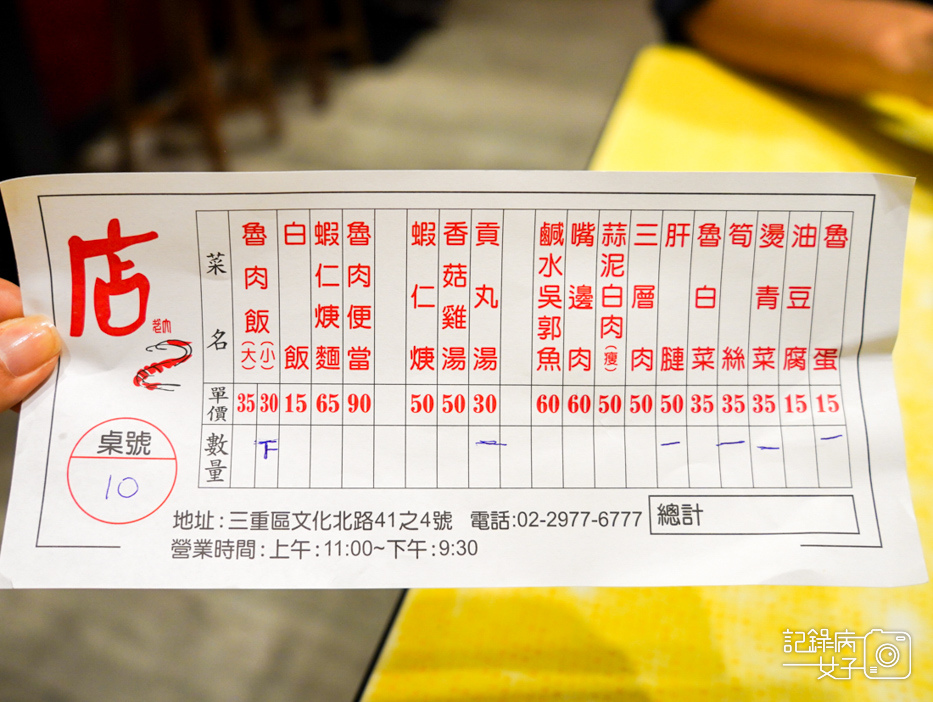 店
菜名
魯肉飯(大)(小)
白飯
蝦仁焿麵
魯肉便當
蝦仁焿
香菇雞湯
貢丸湯
鹹水吳郭魚
嘴邊肉
蒜泥白肉(瘦)
三層肉
肝腱
魯白菜
筍絲
燙青菜
油豆腐
魯蛋
單價 35 30 15 65 90 50 50 30 60 60 50 50 50 35 35 35 15 15
數量 下 一 一 一 一 一
桌號
10
地址:三重區文化北路41之4號 電話:02-2977-6777
總計
營業時間:上午:11:00~下午:9:30
記錄病
女子